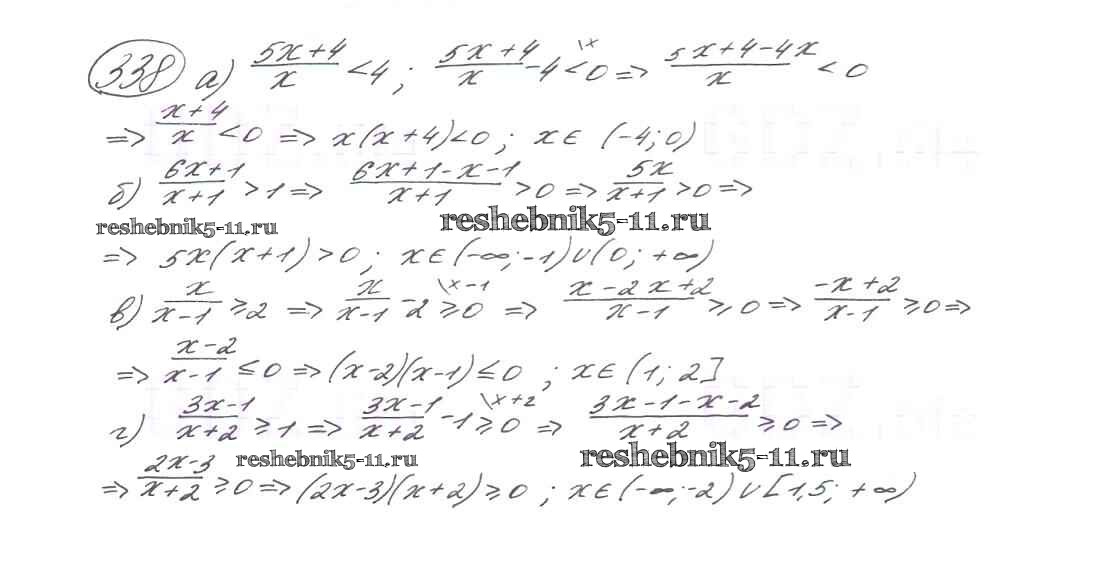 338 а) (5x+4)/x <4 ; (5x+4)/x -4\x <0 => (5x+4-4x)/x <0
=> (x+4)/x <0 => x(x+4)<0 ; x∈ (-4; 0)
б) (6x+1)/(x+1) >1 => (6x+1-x-1)/(x+1) >0 => 5x/(x+1) >0 =>
reshebnik5-11.ru reshebnik5-11.ru
=> 5x(x+1)>0 ; x∈(-∞;-1)∪(0; +∞)
в) x/(x-1) ≥2 => x/(x-1) -2\x-1 ≥0 => (x-2x+2)/(x-1) ≥0 => (-x+2)/(x-1) ≥0 =>
=> (x-2)/(x-1) ≤0 => (x-2)(x-1)≤0 ; x∈(1; 2]
г) (3x-1)/(x+2) ≥1 => (3x-1)/(x+2) -1\x+2 ≥0 => (3x-1-x-2)/(x+2) ≥0 =>
reshebnik5-11.ru reshebnik5-11.ru
=> (2x-3)/(x+2) ≥0 => (2x-3)(x+2)≥0 ; x∈(-∞;-2)∪[1,5; +∞)